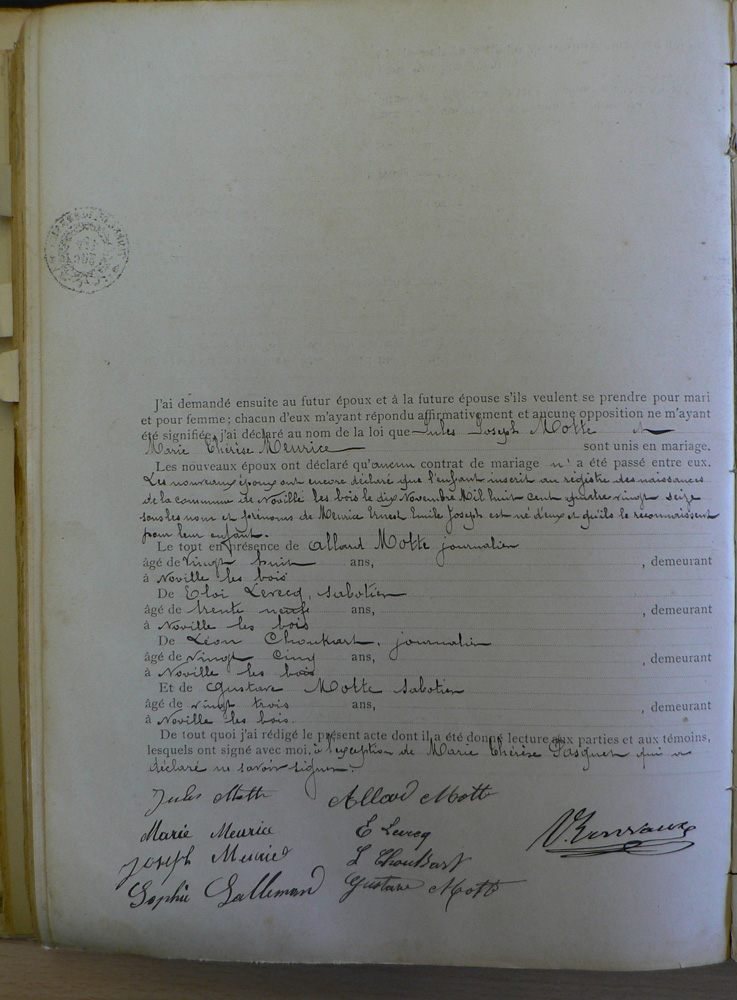 J'ai demandé ensuite au futur époux et à la future épouse s'ils veulent se prendre pour mari
et pour femme ; chacun d'eux m'ayant répondu affirmativement et aucune opposition ne m'ayant
été signifiée, j'ai déclaré au nom de la loi que Jules Joseph Motte et
Marie Thérèse Meurice sont unis en mariage.
Les nouveaux époux ont déclaré qu'aucun contrat de mariage n'a été passé entre eux.
Les nouveaux époux ont encore déclaré que l'enfant inscrit au régistre des naissances
de la commune de Noville les bois le dix Novembre Mil huit cent quatre vingt seize
sous les nom et prénoms de Meurice Ernest Emile Joseph est né d'eux et qu'ils le reconnaissent
pour leur enfant.
Le tout en présence de Allard Motte journalier
âgé de vingt huit ans, , demeurant
à Noville les bois
De Eloi Levecq, sabotier
âgé de trente neuf ans, , demeurant
à Noville les bois
De Léon Choukart, journalier
âgé de vingt cinq ans, , demeurant
à Noville les bois
Et de Gustave Motte sabotier
âgé de vingt trois ans, , demeurant
à Noville les bois.
De tout quoi j'ai rédigé le présent acte dont il a été donné lecture aux parties et aux témoins,
lesquels ont signé avec moi, à l'exception de Marie Thérèse Pasquet qui a
déclaré ne savoir signer.
Jules Motte Allard Motte
Marie Meurice E Levecq
Joseph Meurice L Choukart
Sophie Lallemand Gustave Motte